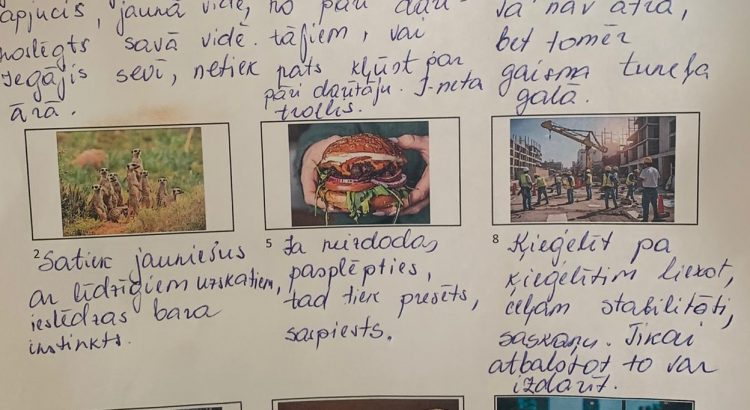 apjucis, jaunā vidē,
noslēgts savā vidē.
Iegājis sevī, netiek
ārā.
no pāri darī-
tājiem, vai
pats kļūst par
pāri darītāju. I-neta
trollis.
Tā nav ātra,
bet tomēr
gaisma tuneļa
galā.
2 Satiek jauniešus
ar līdzīgiem uzskatiem,
ieslēdzas bara
instinkts.
5 Ja neizdodas
paslēpties,
tad tiek presēts,
saspiests.
8 Ķieģelīt pa
ķieģelītim liekot,
ceļam stabilitāti,
saskaņu. Tikai
atbalstot to var
izdarīt.